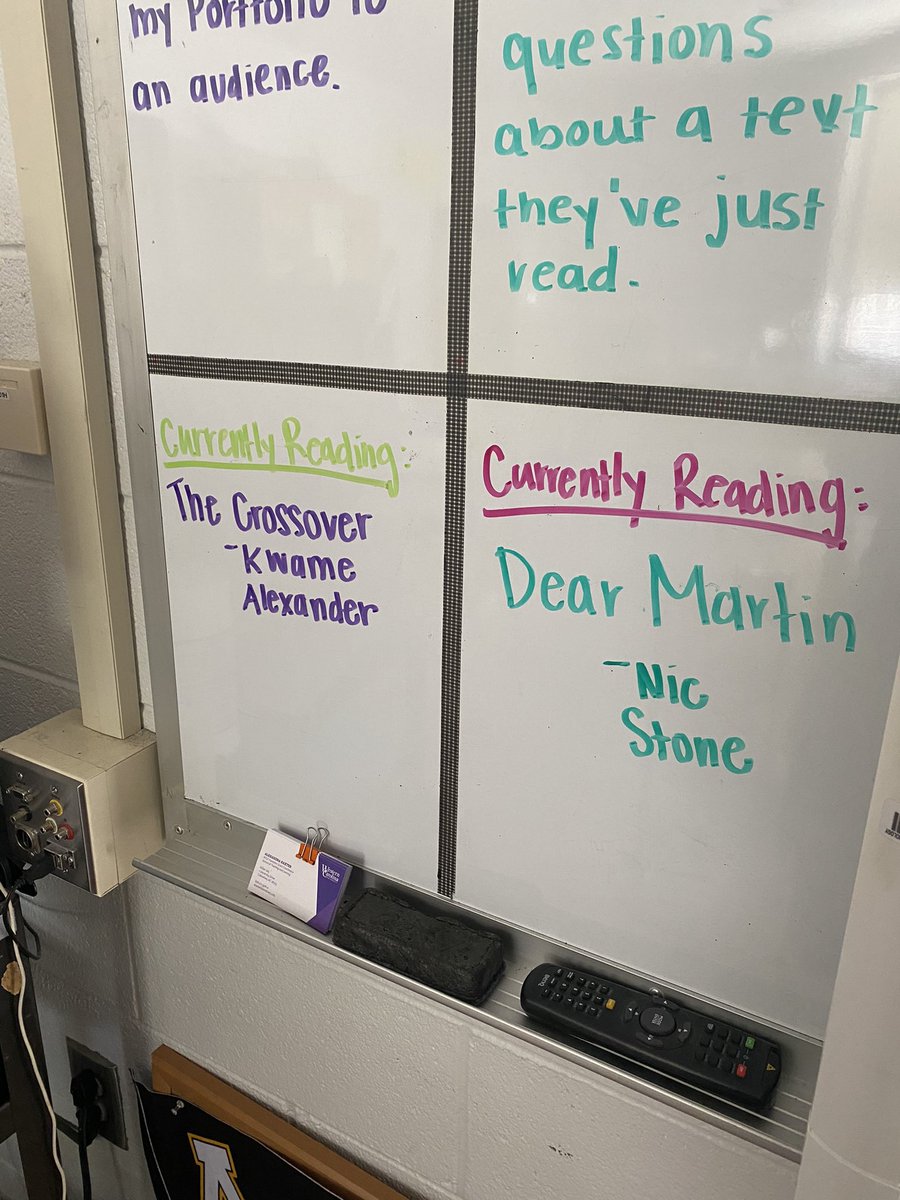 my Portfolio to
an audience.
questions
about a text
they've just
read.
Currently Reading:
The Crossover
-Kwame
Alexander
Currently Reading:
Dear Martin
-Nic
Stone
Western
Carolina